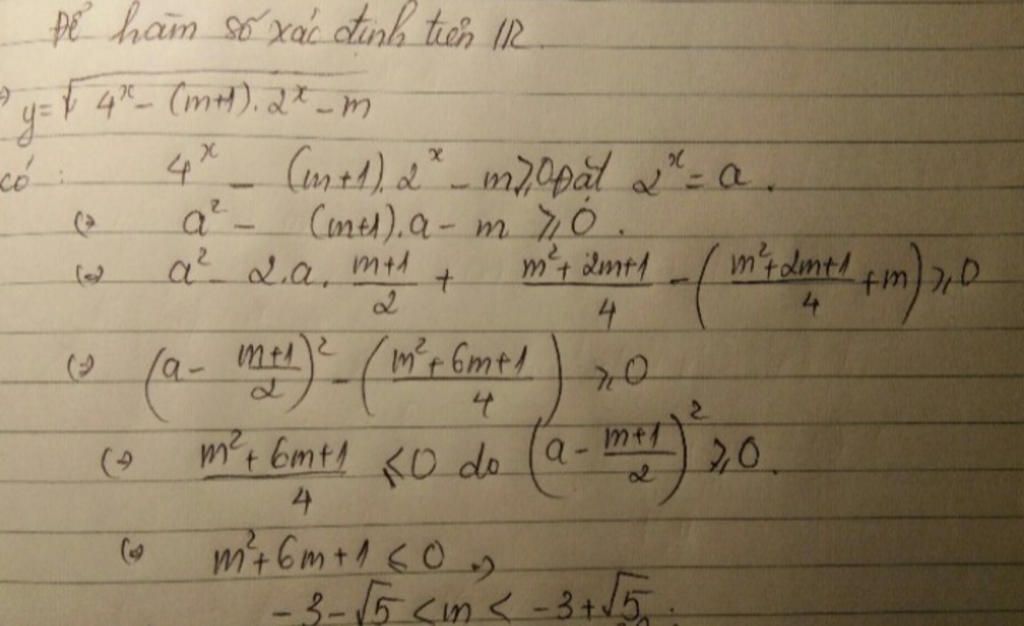 Để hàm số xác định trên IR.
=> y = √(4^x - (m+1).2^x - m)
có: 4^x - (m+1).2^x - m ⩾ 0 Đặt 2^x = a.
(=) a² - (m+1).a - m ⩾ 0.
(=) a² - 2.a. (m+1)/2 + (m²+2m+1)/4 - ((m²+2m+1)/4 + m) ⩾ 0
(=) (a - (m+1)/2)² - ((m²+6m+1)/4) ⩾ 0
(=) (m²+6m+1)/4 ⩽ 0 do (a - (m+1)/2)² ⩾ 0.
(=) m²+6m+1 ⩽ 0 =>
-3-√5 < m < -3+√5.